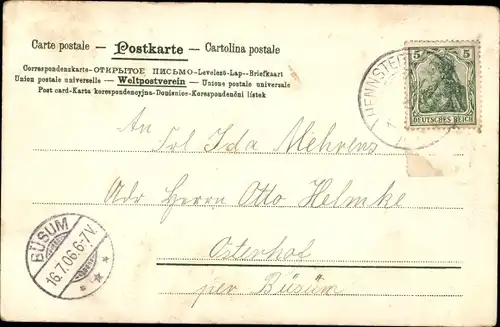 Carte postale — Postkarte — Cartolina postale
Correspondenzkarte-ОТКРЫТОЕ ПИСЬМО-Levelező-Lap--Briefkaart
Union postale universelle — Weltpostverein — Unione postale universale
Post card-Karta korespondencyjna-Dopisnice-Korespondenční listek
HENNSTE
5 5
DEUTSCHES REICH
An
Frl Ida Mehrens
Adr Herrn Otto Helmke
Osterhof
per Büsum
BÜSUM
16.7.06.6-7V.